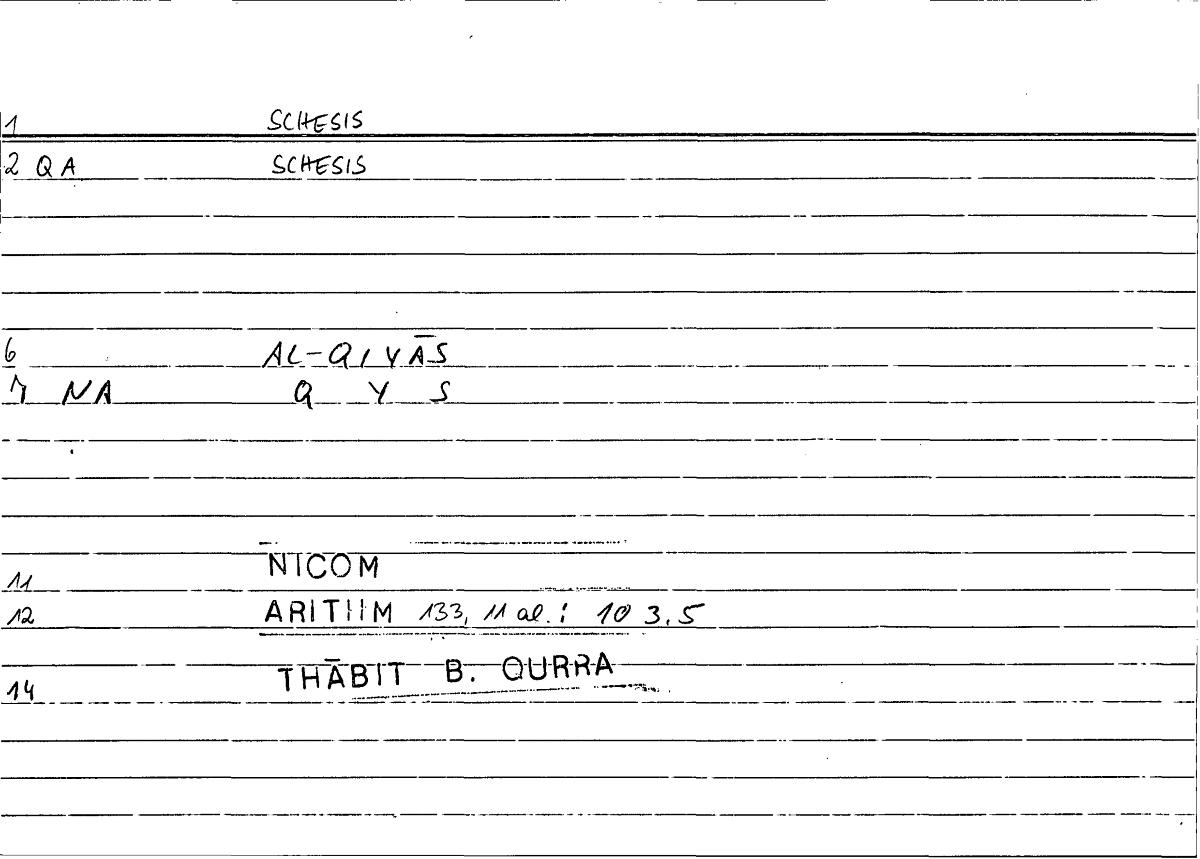 1 SCHESIS
2 QA SCHESIS
6 AL-QIYĀS
7 NA Q Y S
11 NICOM
12 ARITHM 133, 11 al. : 103.5
14 THĀBIT B. QURRA